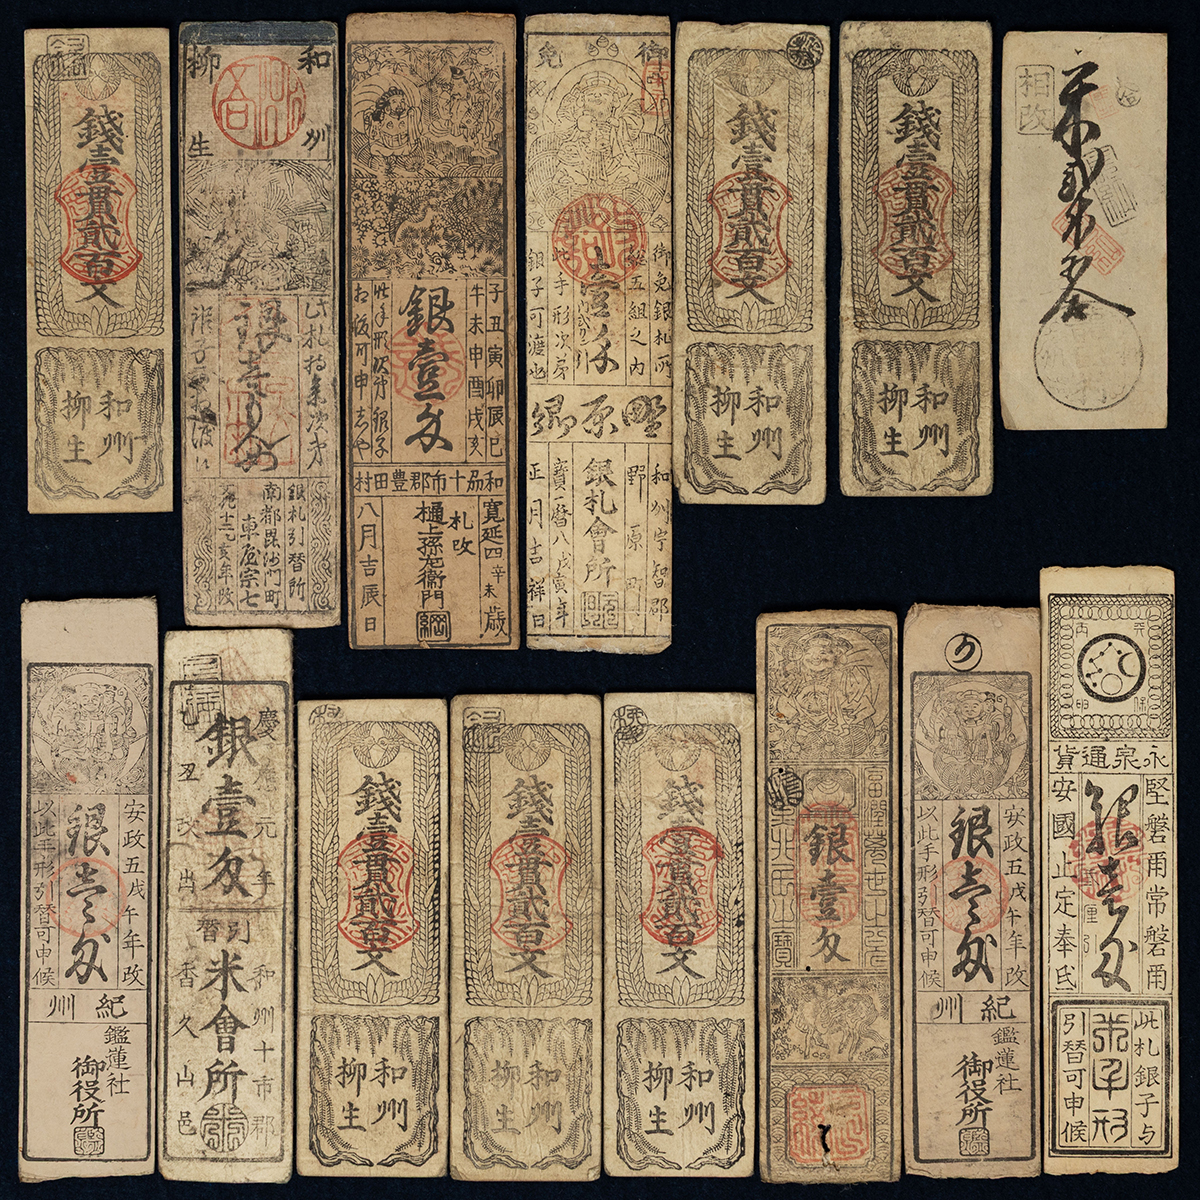 錢壹貫貳百文
和州
柳生
和州
柳生
銀札引替所
南都毘沙門町
車屋宗七
子丑寅卯辰巳
午未申酉戌亥
銀壹匁
和州十市郡豊田村
寛延四辛未歳
札改
樋上孫左衛門
八月吉辰日
御免
御免銀札所
組五組之内
此手形次第
銀子可渡也
野原郷
和州宇智郡
野原町
銀札會所
寶暦八戊寅年
正月吉祥日
錢壹貫貳百文
和州
柳生
錢壹貫貳百文
和州
柳生
相改
安政五戊午年改
銀壹匁
以此手形引替可申候
紀州
鑑蓮社
御役所
慶應元年
銀壹匁
乙丑改出
引替
和州十市郡
米會所
香久山邑
錢壹貫貳百文
和州
柳生
錢壹貫貳百文
和州
柳生
錢壹貫貳百文
和州
柳生
銀壹匁
安政五戊午年改
銀壹匁
以此手形引替可申候
紀州
鑑蓮社
御役所
永泉通貨
堅磐甬常磐甬
銀壹匁
安國止定奉氐
此札銀子与
米手形
引替可申候